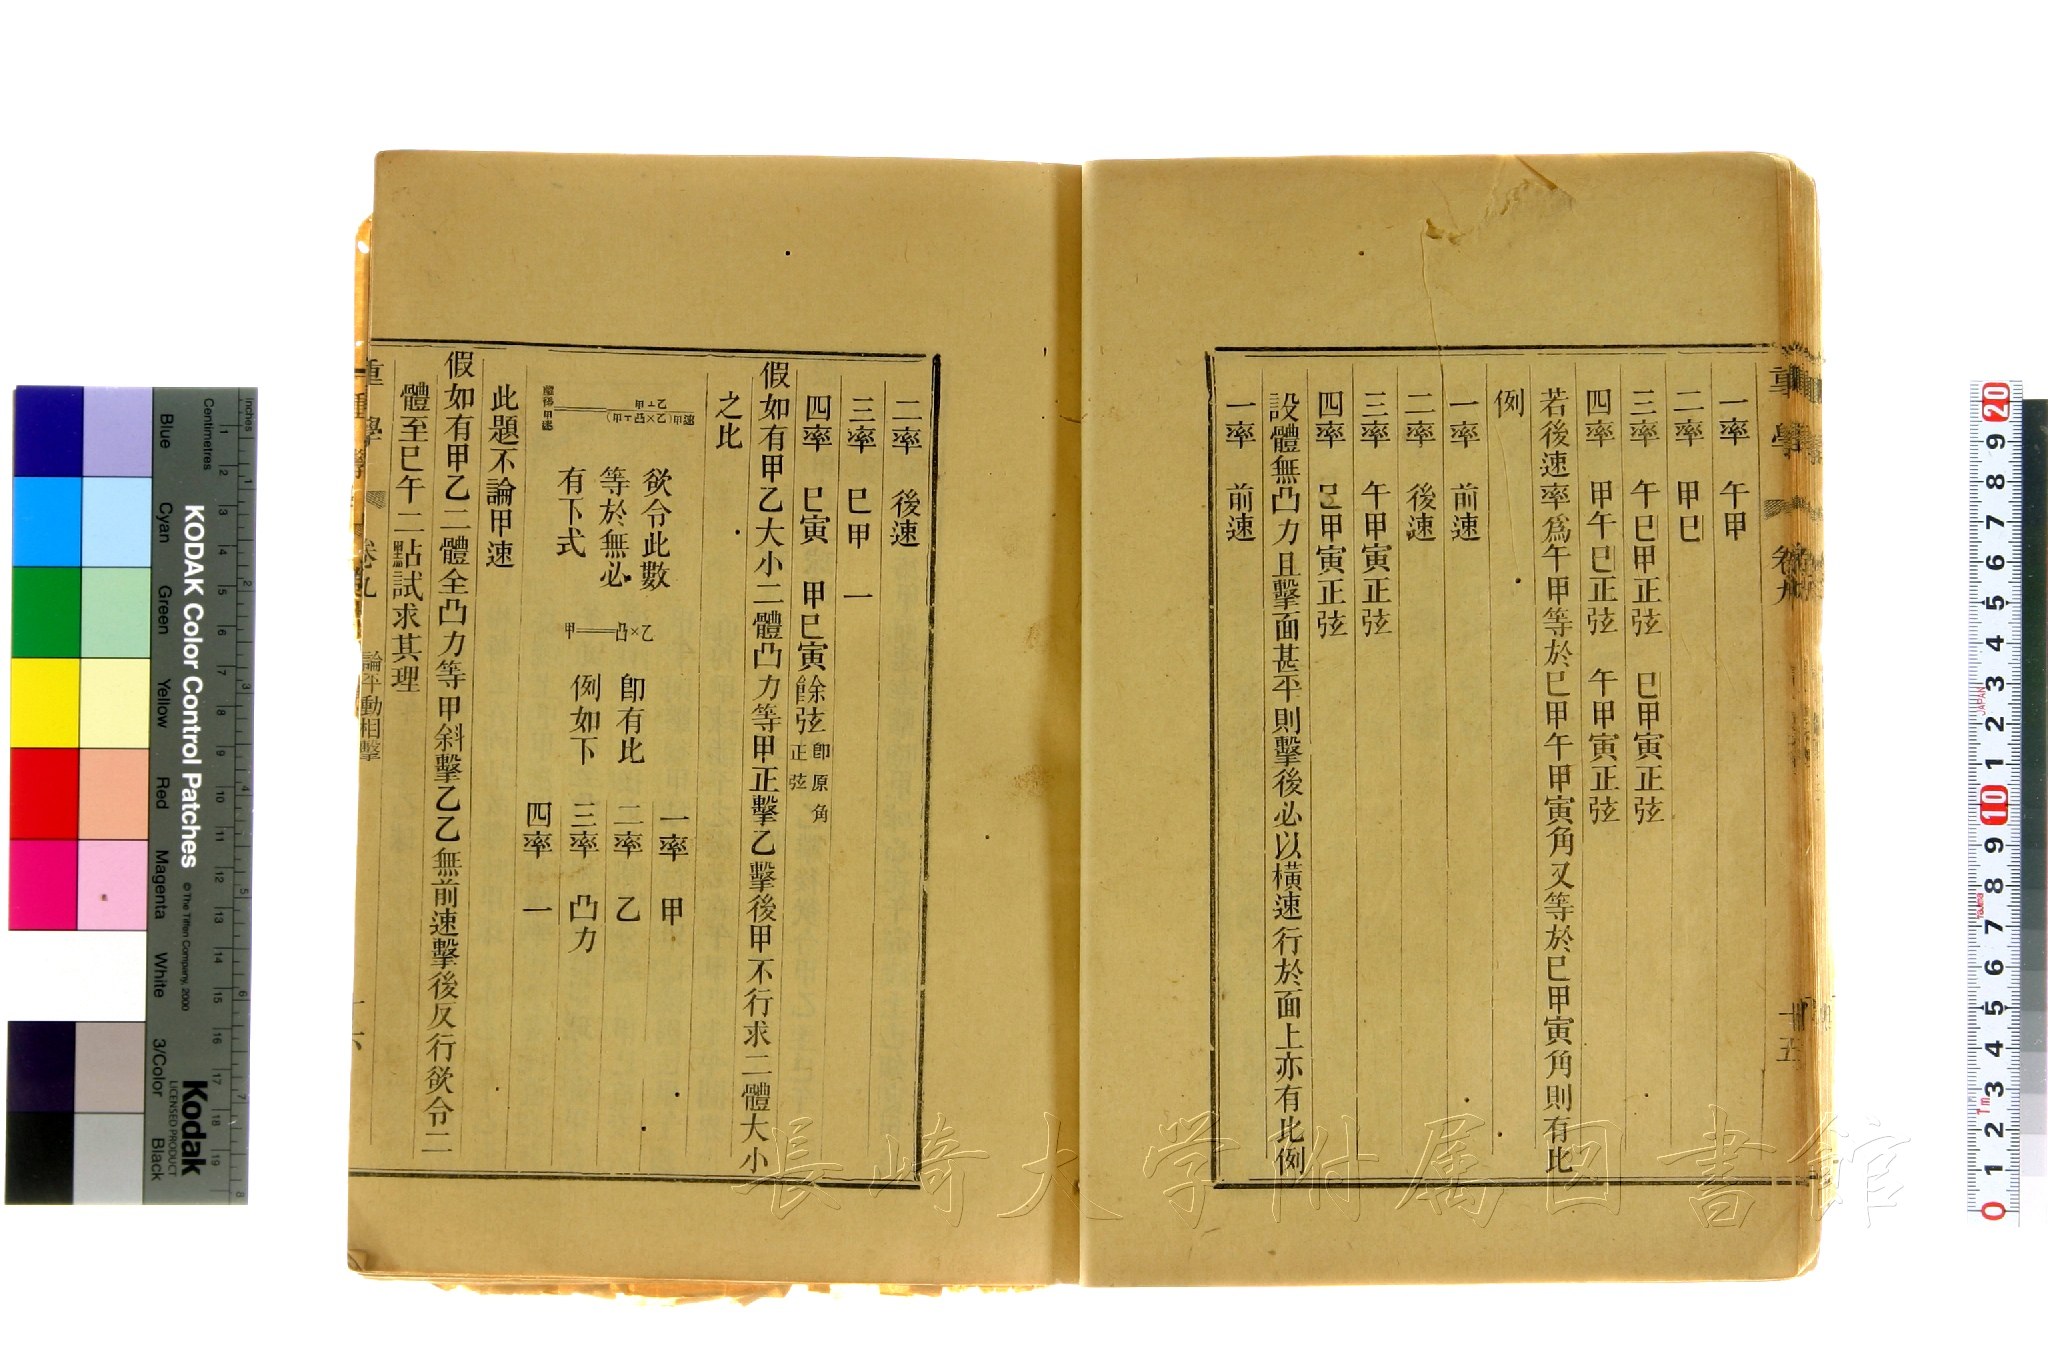 一率　午甲
二率　甲巳
三率　午巳甲正弦　巳甲寅正弦
四率　甲午巳正弦　午甲寅正弦
若後速率爲午甲等於巳甲午甲寅角又等於巳甲寅角則有比
例
一率　前速
二率　後速
三率　午甲寅正弦
四率　巳甲寅正弦
設體無凸力且擊面甚平則擊後必以橫速行於面上亦有比例
一率　前速
重學
卷九
十五
二率　後速
三率　巳甲　一
四率　巳寅　甲巳寅餘弦 卽原角正弦
假如有甲乙大小二體凸力等甲正擊乙擊後甲不行求二體大小
之比
欲令此數
等於無必
有下式
甲＝凸×乙
卽有比
例如下
一率　甲
二率　乙
三率　凸力
四率　一
此題不論甲速
假如有甲乙二體全凸力等甲斜擊乙乙無前速擊後反行欲令二
體至巳午二點試求其理
重學
卷九
論平動相擊
長崎大学附属図書館
KODAK Color Control Patches
© The Tiffen Company, 2000
Kodak
LICENSED PRODUCT
Inches
Centimetres
Blue
Cyan
Green
Yellow
Red
Magenta
White
3/Color
Black
JAPAN